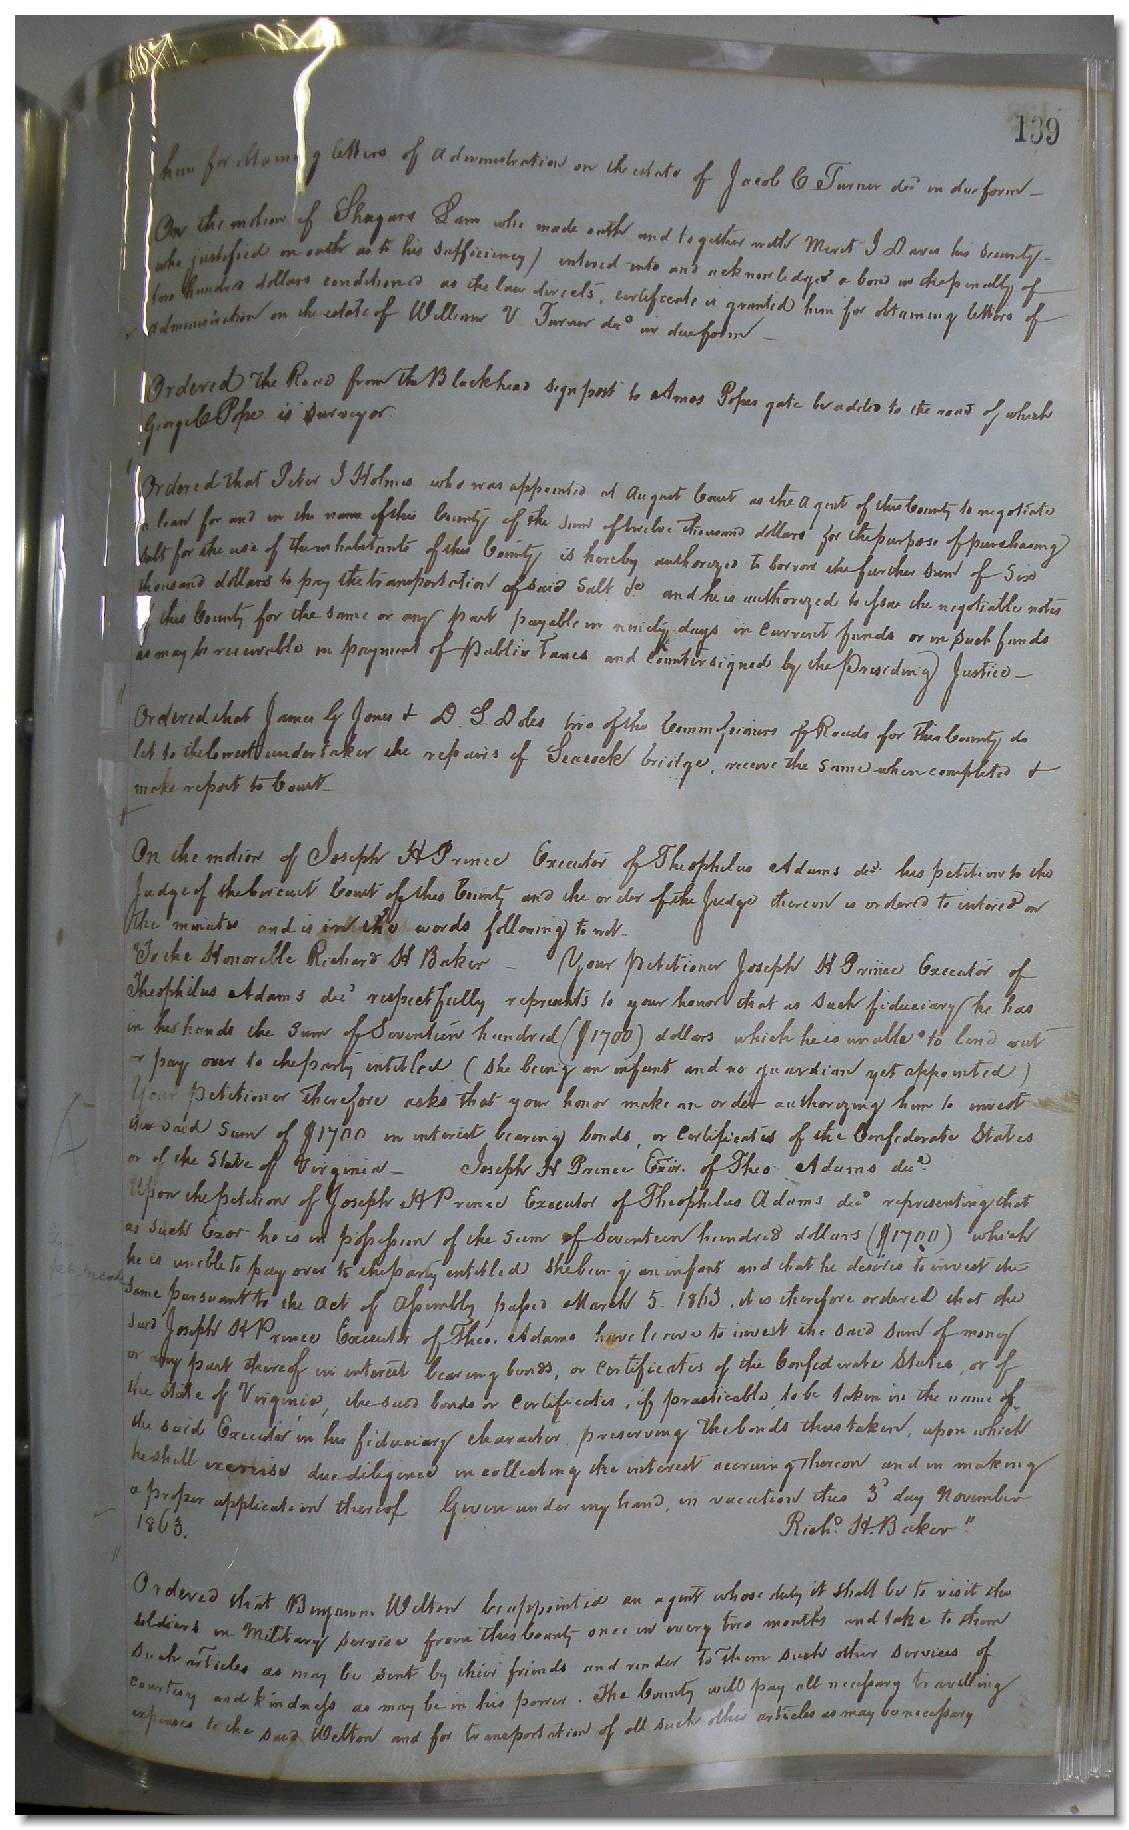 139
him for obtaining letters of administration on the estate of Jacob C Turner decd in due form —
On the motion of Shugars Lain who made oath and together with Merit I Daves his security
who justified on oath as to his sufficiency) entered into and acknowledged a bond in the penalty of
two hundred dollars conditioned as the law directs, certificate is granted him for obtaining letters of
administration on the estate of William V Turner decd in due form —
Ordered the Road from the Blackhead sign post to Amos Popes gate be added to the road of which
George C Pope is surveyor
Ordered that Peter I Holmes who was appointed at August Court as the Agent of this County to negotiate
a loan for and in the name of this County of the sum of twelve thousand dollars for the purpose of purchasing
salt for the use of the inhabitants of this County is hereby authorized to borrow the further sum of Six
thousand dollars to pay the transportation of said Salt &c and he is authorized to issue the negotiable notes
of this County for the same or any part payable in ninety days in current funds or in such funds
as may be receivable in payment of Public Taxes and Countersigned by the Presiding Justice —
Ordered that James G Jones & D. S. Doles two of the Commissioners of Roads for this County do
let to the lowest undertaker the repairs of Seacock bridge, receive the same when completed &
make report to Court —
On the motion of Joseph H Prince Executor of Theophilus Adams decd his petition to the
Judge of the Circuit Court of this County and the order of the Judge thereon is ordered to entered on
the minutes and is in the words following to wit.
"To the Honorable Richard H Baker — Your Petitioner Joseph H Prince Executor of
Theophilus Adams decd respectfully represents to your honor that as such fiduciary he has
in his hands the sum of Seventeen hundred ($1700) dollars which he is unable to lend out
or pay over to the party entitled (she being an infant and no guardian yet appointed)
Your Petitioner therefore asks that your honor make an order authorizing him to invest
the said sum of $1700 in interest bearing bonds, or certificates of the Confederate States
or of the State of Virginia — Joseph H Prince Exor. of Theo. Adams decd
Upon the petition of Joseph H Prince Executor of Theophilus Adams decd representing that
as such Exor he is in possession of the sum of Seventeen hundred dollars ($1700) which
he is unable to pay over to the party entitled she being an infant and that he desires to invest the
same pursuant to the act of Assembly passed March 5. 1863, it is therefore ordered that the
said Joseph H Prince Executor of Theo. Adams have leave to invest the said sum of money
or any part thereof in interest bearing bonds, or certificates of the Confederate States, or of
the State of Virginia, the said bonds or certificates, if practicable, to be taken in the name of
the said Executor in his fiduciary character preserving the bonds thus taken, upon which
he shall exercise due diligence in collecting the interest accruing thereon and in making
a proper application thereof Given under my hand, in vacation this 3d day November
1863. Richd. H. Baker"
Ordered that Benjamin Welton be appointed an agent whose duty it shall be to visit the
soldiers in Military service from this County once in every two months and take to them
such articles as may be sent by their friends and render to them such other services of
courtesy and kindness as may be in his power. The County will pay all necessary travelling
expenses to the said Welton and for transportation of all such other articles as may be necessary